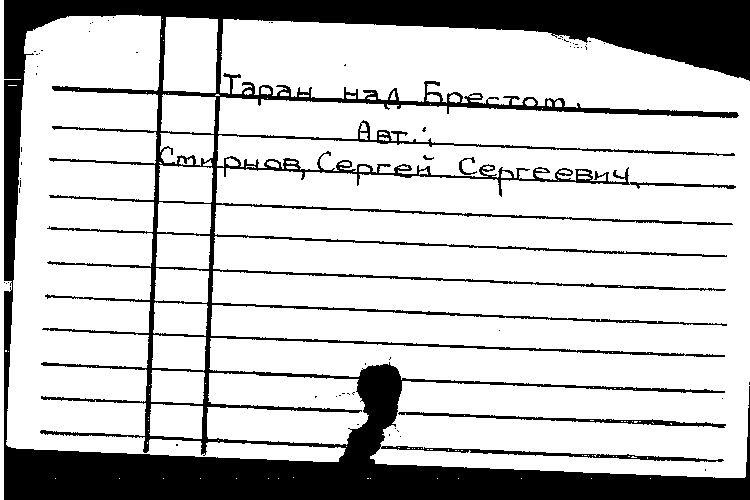 Таран над Брестом.
Авт.:
Смирнов, Сергей Сергеевич.